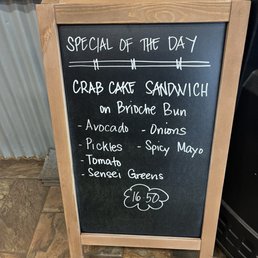 SPECIAL OF THE DAY
CRAB CAKE SANDWICH
on Brioche Bun
- Avocado - Onions
- Pickles - Spicy Mayo
- Tomato
- Sensei Greens
16.50